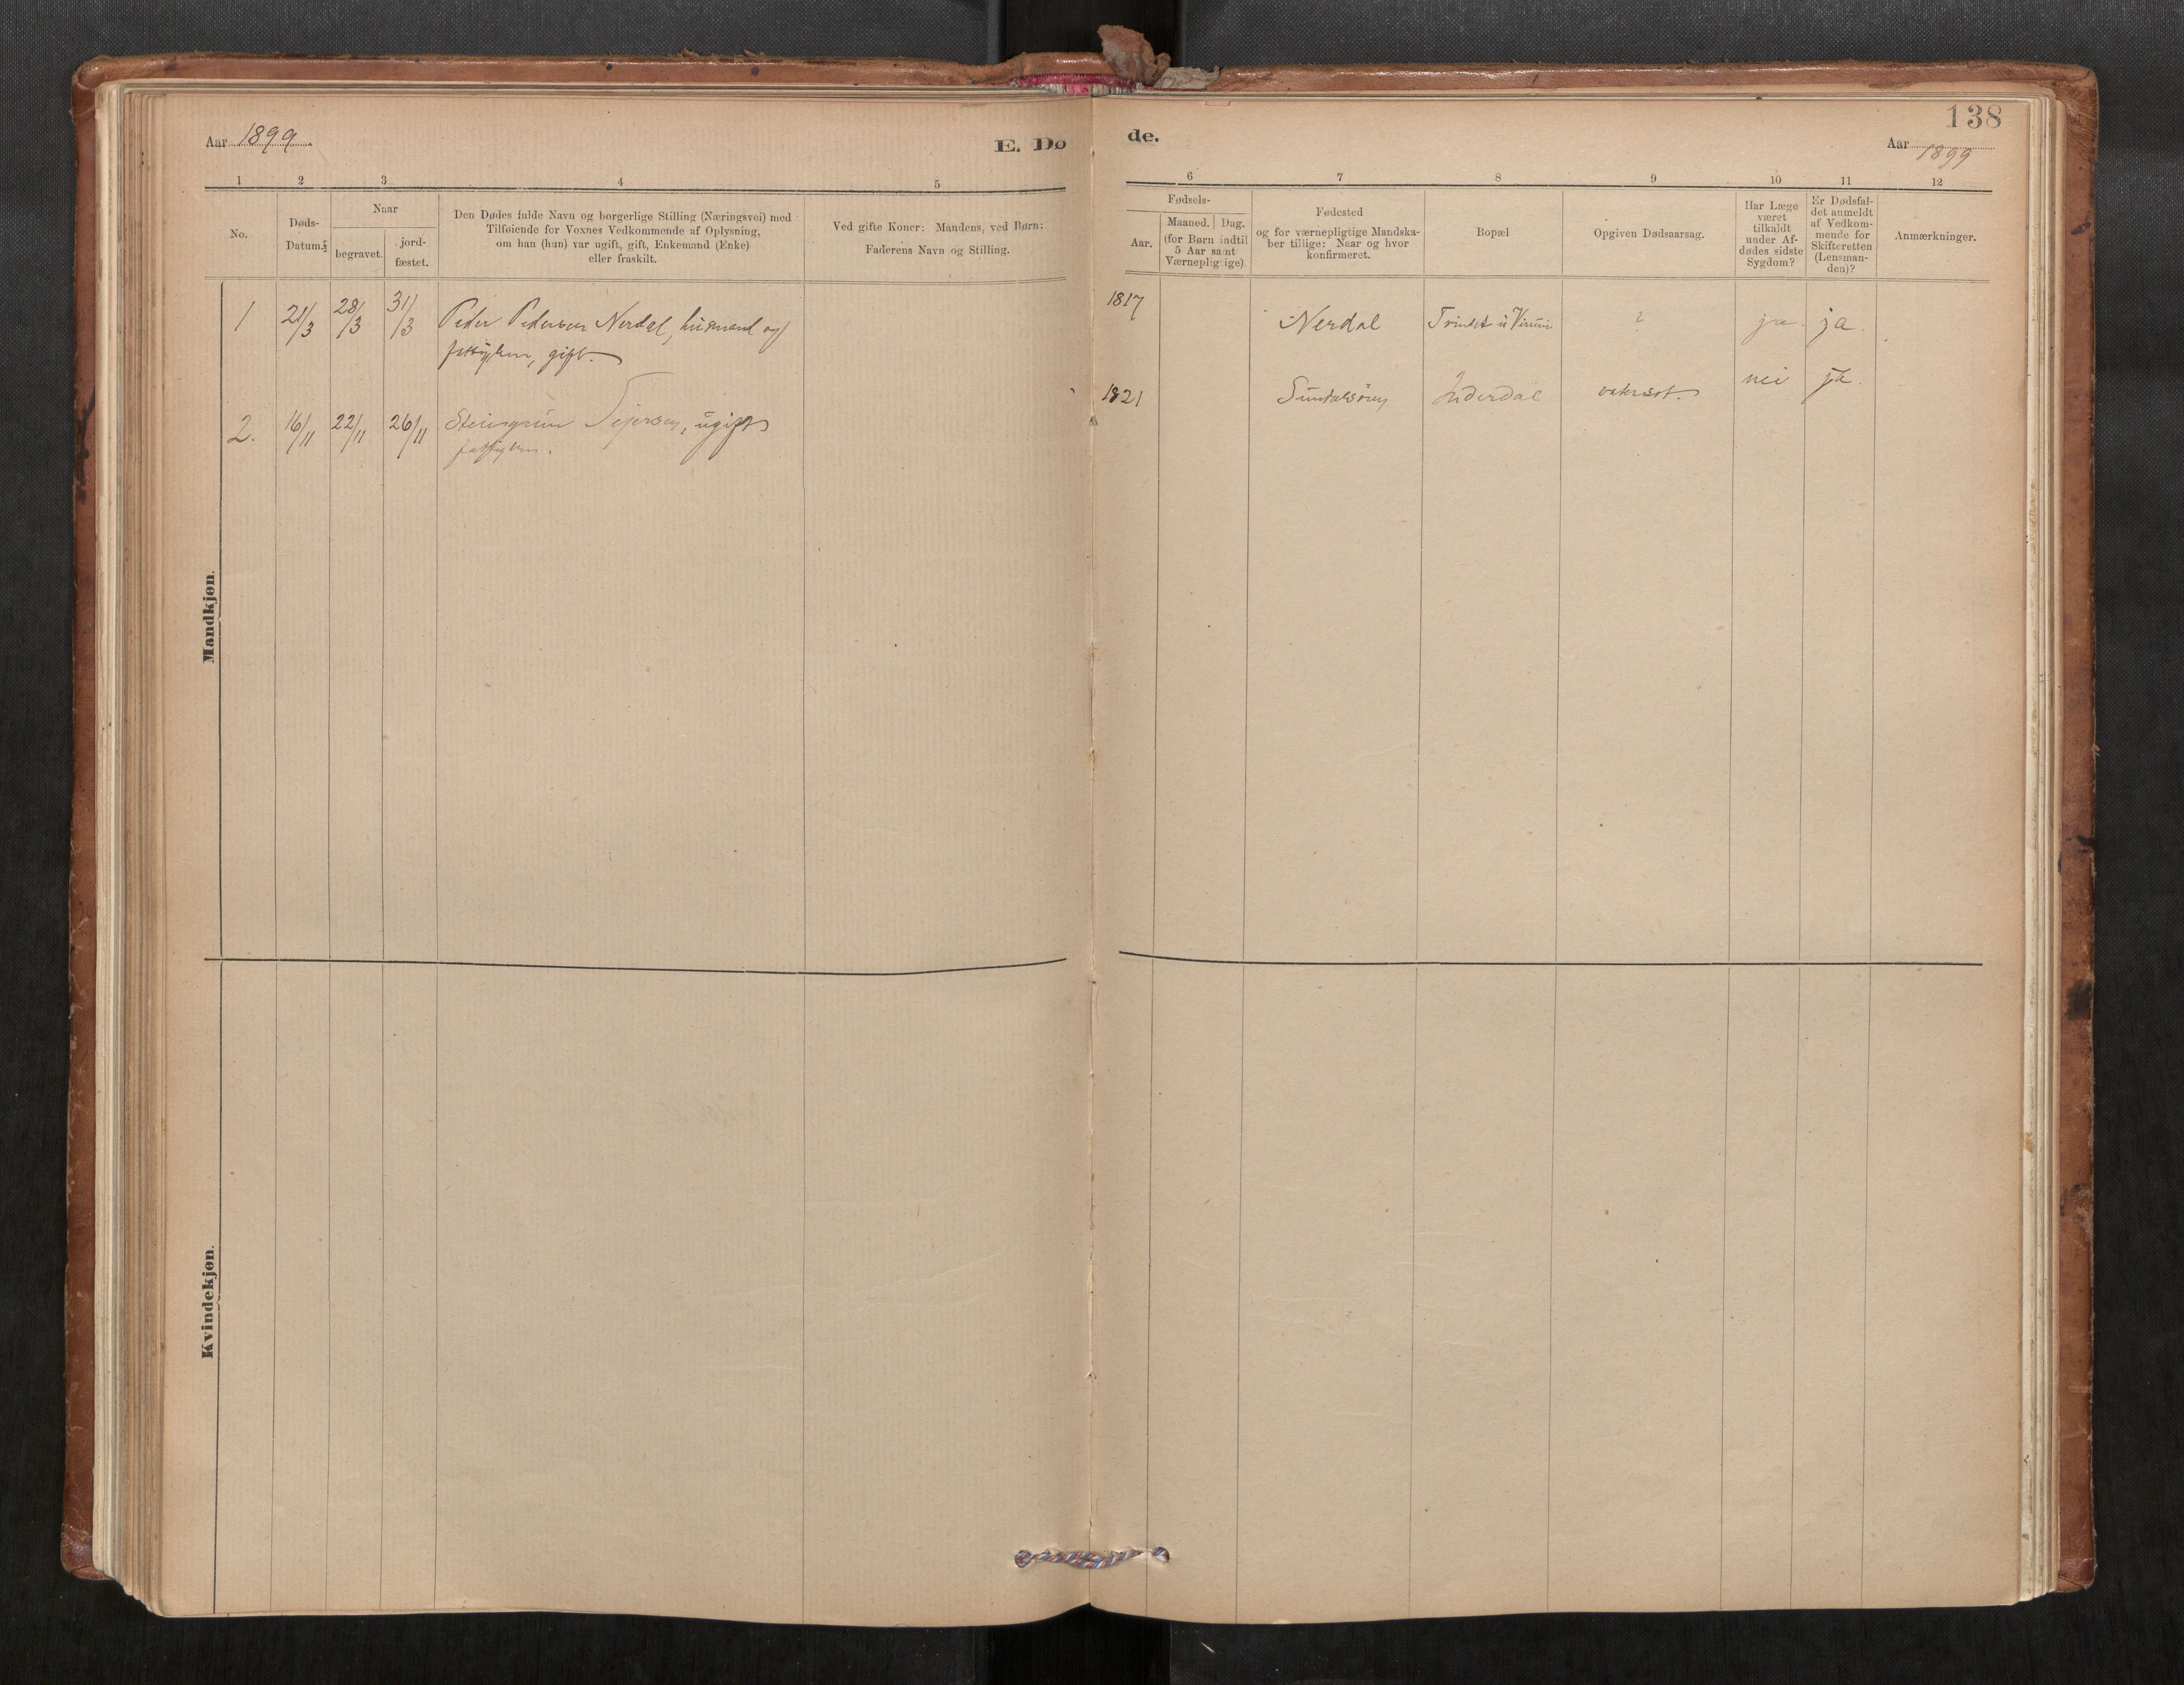 138
Aar 1899
E. Døde.
Aar 1899
1 2 3 4 5 6 7 8 9 10 11 12
No.
Døds-
Datum.
Naar
begravet.
jord-
fæstet.
Den Dødes fulde Navn og borgerlige Stilling (Næringsvei) med
Tilføiende for Voxnes Vedkommende af Oplysning,
om han (hun) var ugift, gift, Enkemand (Enke)
eller fraskilt.
Ved gifte Koner: Mandens, ved Børn:
Faderens Navn og Stilling.
Fødsels-
Aar.
Maaned. Dag.
(for Børn indtil
5 Aar samt
Værnepligtige).
Fødested
og for værnepligtige Mandska-
ber tillige: Naar og hvor
konfirmeret.
Bopæl
Opgiven Dødsaarsag.
Har Læge
været
tilkaldt
under Af-
dødes sidste
Sygdom?
Er Dødsfal-
det anmeldt
af Vedkom-
mende for
Skifteretten
(Lensman-
den)?
Anmærkninger.
Mandkjøn.
1 21/3 28/3 31/3 Peder Pedersen Nerdal, husmand og 1817 Nerdal ? ja ja.
gift.
2. 16/11 22/11 26/11 ugift 1821 nei ja.
Kvindekjøn.